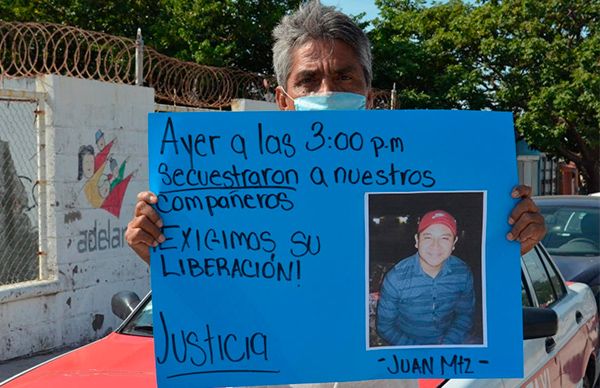 AYER A LAS 3:00 p.m
SECUESTRARON A NUESTROS
COMPAÑEROS
¡EXIGIMOS SU
LIBERACIÓN!
JUSTICIA
-JUAN Mtz-
adelan